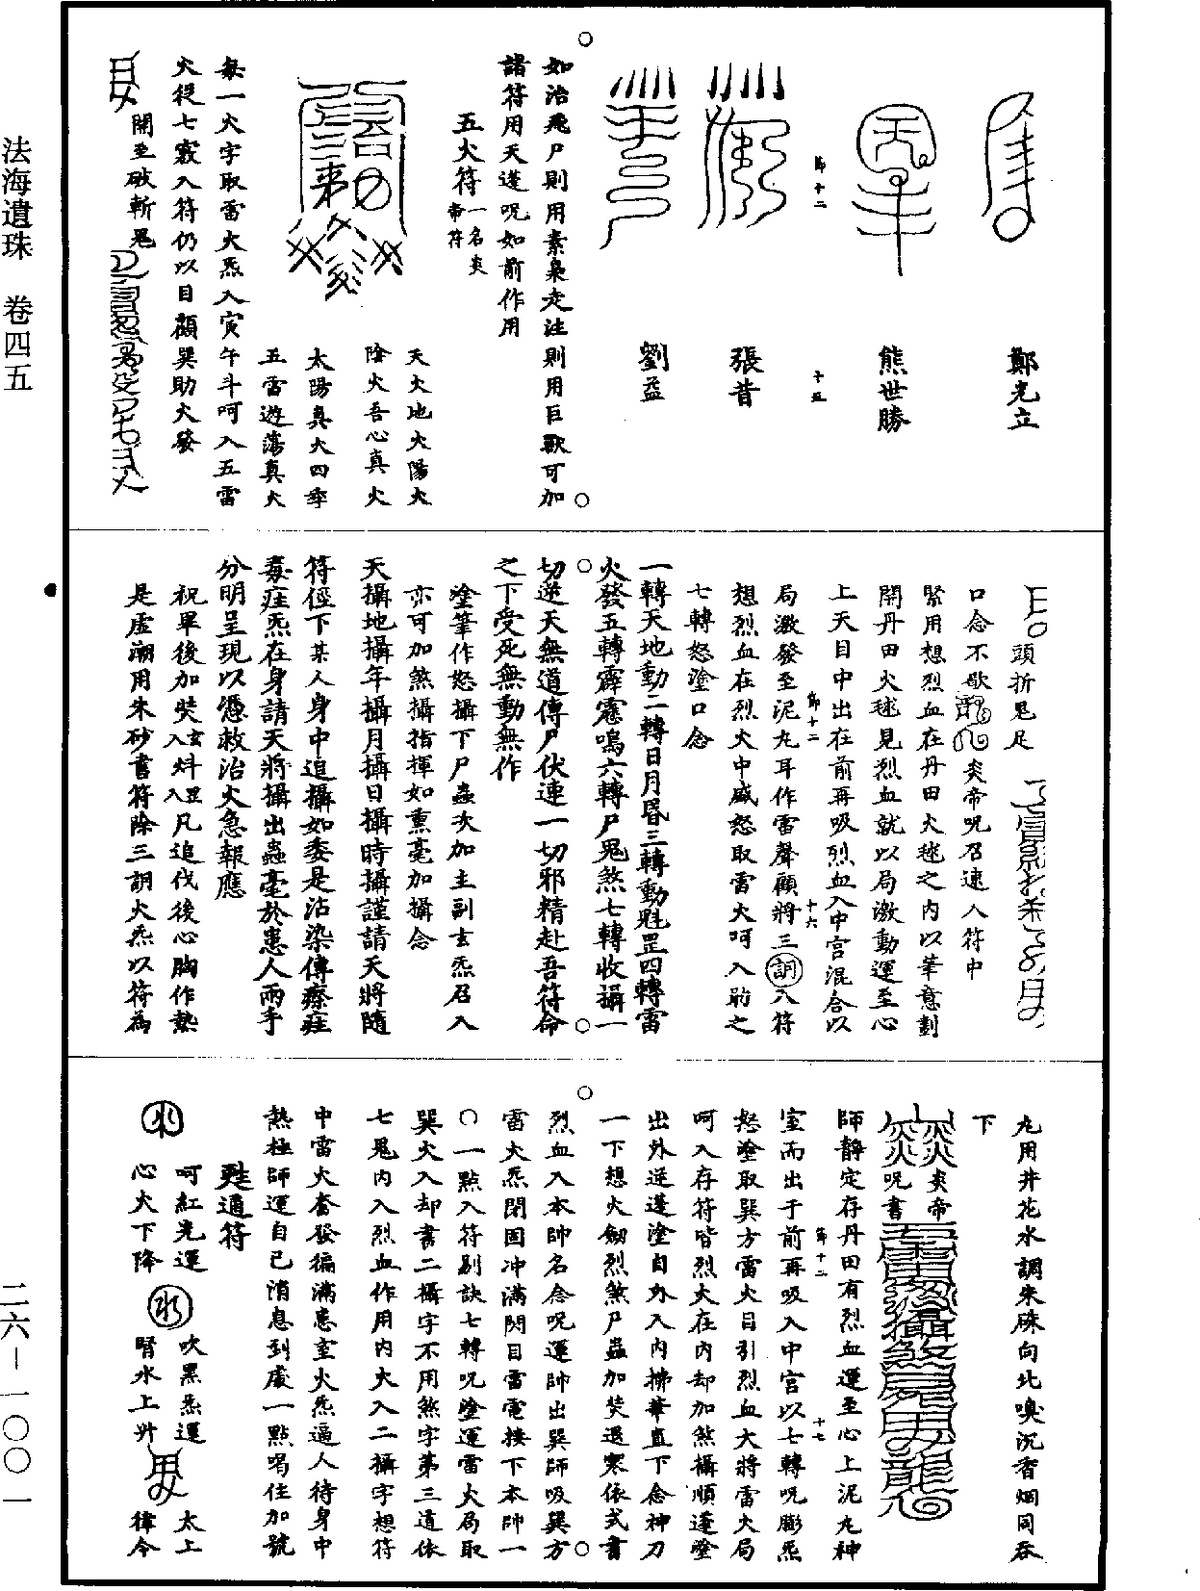 法海遺珠　卷四五
二六－一〇〇一
鄭光立
熊世勝
節十二
十五
張昔
劉益
如治飛尸則用素梟走注則用巨獸可加
諸符用天蓬呪如前作用
五火符一名炎帝符
天火地火陽火
陰火吾心真火
太陽真火四季
五雷遊蕩真火
每一火字取雷火炁入寅午斗呵入五雷
火從七竅入符仍以目顧巽助火發
開至破斬鬼
頭折鬼足
口念不歇
炎帝呪召速入符中
緊用想烈血在丹田火毬之內以筆意劃
開丹田火毬見烈血就以局激動運至心
上天目中出在前再吸烈血入中宮混合以
節十二
十六
局激發至泥丸耳作雷聲顧將三詷入符
想烈血在烈火中威怒取雷火呵入助之
七轉怒塗口念
一轉天地動二轉日月昏三轉動魁罡四轉雷
火發五轉霹靂鳴六轉尸鬼煞七轉收攝一
切逆天無道傳尸伏連一切邪精赴吾符命
之下受死無動無作
塗筆作怒攝下尸蟲次加主副玄炁召入
亦可加煞攝指揮如熏毫加攝念
天攝地攝年攝月攝日攝時攝謹請天將隨
符徑下某人身中追攝如委是沾染傳瘵疰
毒疰炁在身請天將攝出蟲毫於患人兩手
分明呈現以憑救治火急報應
祝畢後加奘入玄斜入罡凡追伐後心胸作熱
是虛潮用朱砂書符除三詷火炁以符為
丸用井花水調朱硃向北噀沉香烟同吞
下
炎帝
呪書
師靜定存丹田有烈血運至心上泥丸神
室而出于前再吸入中宮以七轉呪膨炁
節十二
十七
怒塗取巽方雷火目引烈血大將雷火局
呵入存符皆烈火在內却加煞攝順逢塗
出外逆蓬塗自外入內拂華直下念神刀
一下想火劒烈煞尸蟲加焚退寒依式書
烈血入本帥名念呪運帥出巽師吸巽方
雷火炁閉固冲滿閃目雷電棲下本帥一
〇一點入符剔訣七轉呪塗運雷火局取
巽火入却書二攝字不用煞字第三道依
七鬼內入烈血作用內大入二攝字想符
中雷火奮發徧滿患室火炁逼人待身中
熱極師運自己消息到處一點喝住加號
甦通符
呵紅光運
心火下降
吹黑炁運
腎水上升
太上
律令